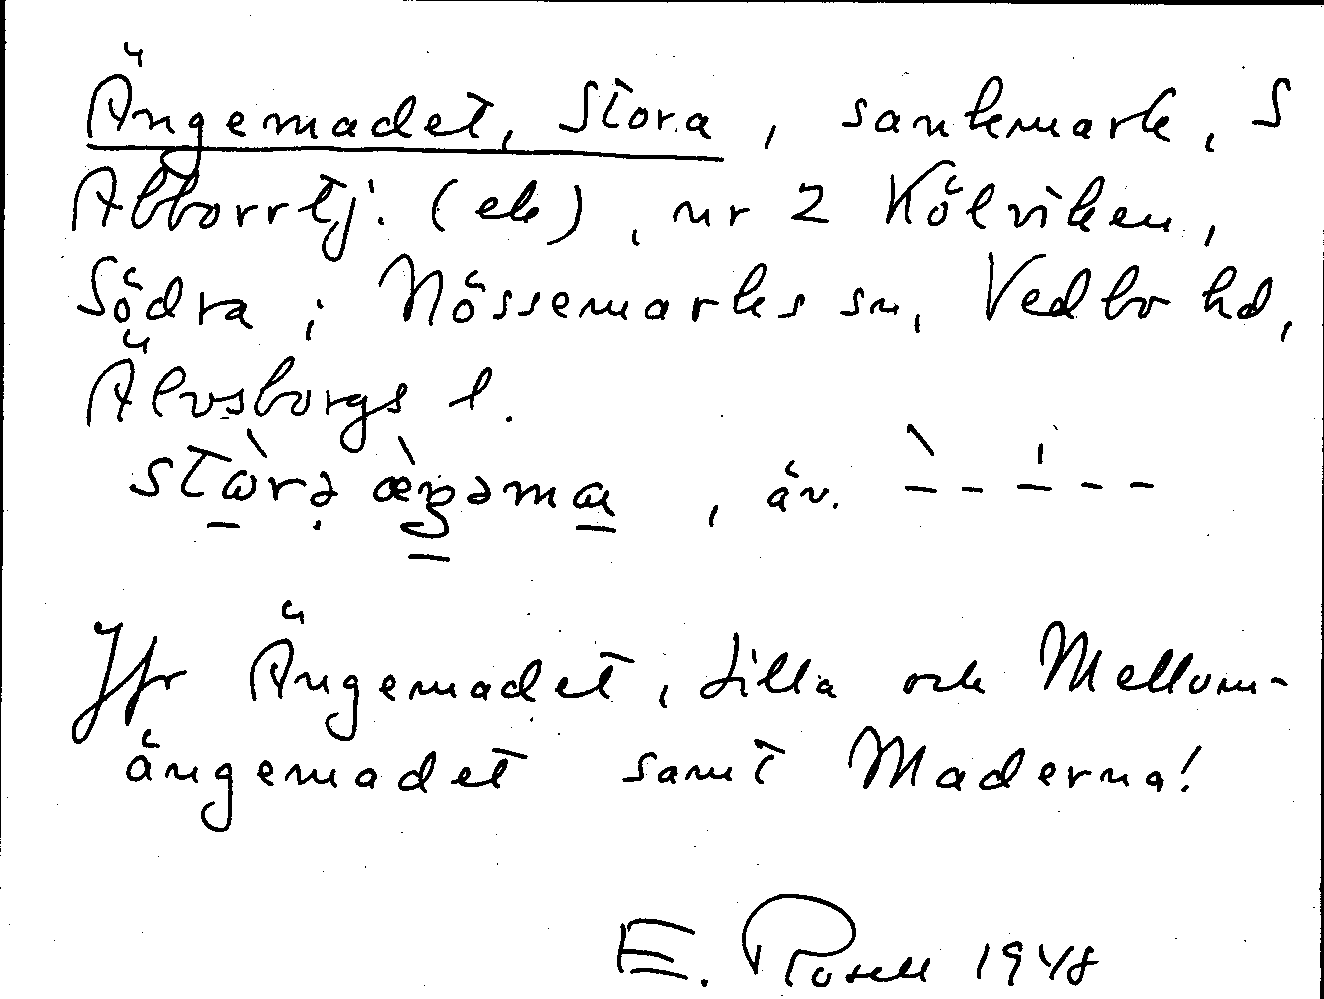 Ängemadet, Stora, sankmark, S
Abborrtj. (ek), nr 2 Kölviken,
Södra; Nössemarks sn, Vedbo hd,
Älvsborgs l.
, äv.
Jfr Ängemadet, Lilla och Mellom-
ängemadet samt Maderna!
E. Rosell 1948